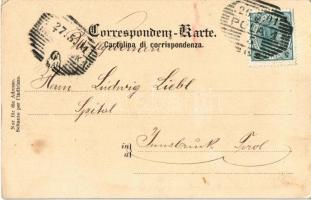 Correspondenz-Karte.
Cartolina di corrispondenza.
27.5.
POLA 1
Herrn Ludwig Liebl
Spital
in
a
Innsbruck Tirol
Nur für die Adresse.
Soltanto per l'indirizzo.